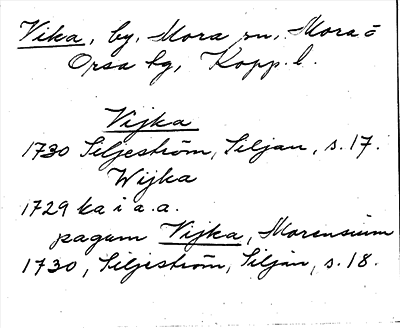 Vika, by, Mora sn, Mora o
Orsa tg, Kopp. l.
Vijka
1730 Siljeström, Siljan, s. 17.
Wijka
1729 ka i a.a.
pagum Vijka, Morensium
1730, Siljeström, Siljan, s. 18.